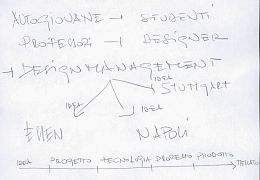 AUTOGIOVANE → STUDENTI
PROFESSORI → DESIGNER
→ DESIGN MANAGEMENT
IDEA
→ STUTTGART
IDEA
IDEA
ESSEN
NAPOLI
IDEA PROGETTO TECNOLOGIA PRODOTTO